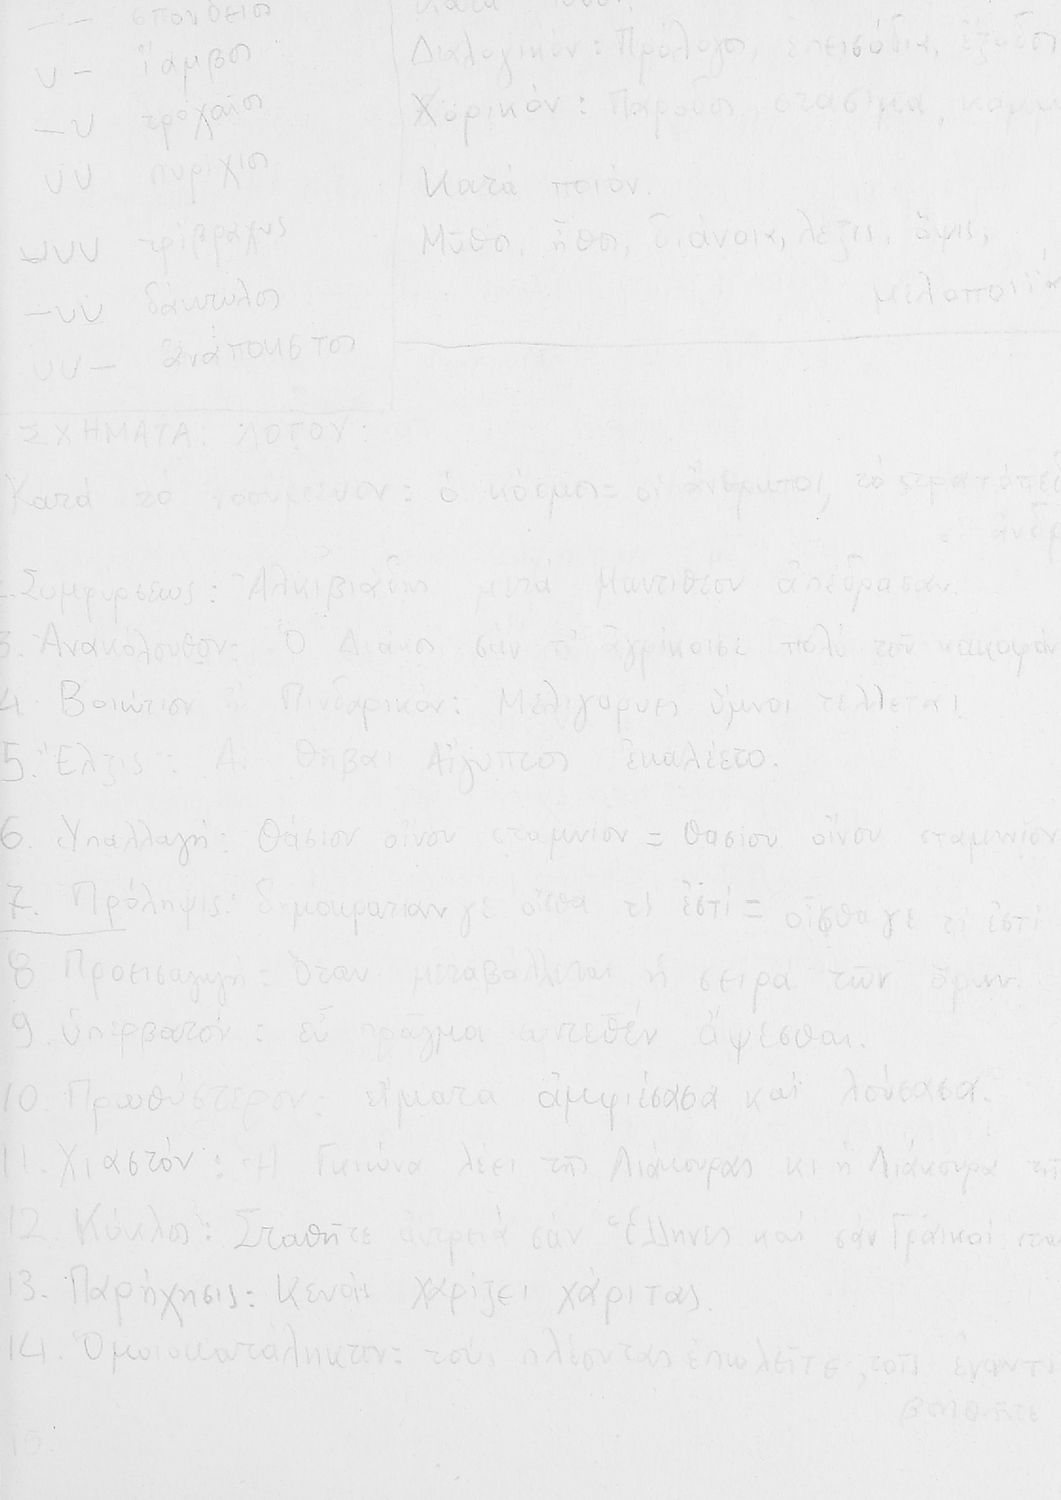 — — σπονδεῖος
υ — ἴαμβος
— υ τροχαῖος
υυ πυρίχιος
υυυ τρίβραχυς
—υυ δάκτυλος
υυ— ἀνάπαιστος
Κατά
Διαλογικόν: Πρόλογος, ἐπεισόδια, ἔξοδος
Χορικόν: Πάροδος, στάσιμα,
Κατά ποιόν.
Μῦθος, ἦθος, διάνοια, λέξις, ὄψις,
μελοποιΐα
ΣΧΗΜΑΤΑ ΛΟΓΟΥ:
Κατά τό νοούμενον: ὁ κόσμος = οἱ ἄνθρωποι, τό
Συμφύρσεως: Ἀλκιβιάδης μετά Μαντιθέου ἀπέδρασαν.
3. Ἀνακόλουθον: Ὁ Διάκος σάν τ' ἀγρίκοισε πολύ τοῦ
4. Βοιώτιον ἤ Πινδαρικόν: Μελιγάρυες ὕμνοι τέλλεται.
5. Ἕλξις: Αἱ Θῆβαι Αἴγυπτος ἐκαλέετο.
6. Ὑπαλλαγή: Θάσιον οἴνου σταμνίον = Θασίου οἴνου σταμνίον
7. Πρόληψις: δημοκρατίαν γε οἶσθα τί ἐστί = οἶσθα γε τί ἐστί
8 Προεισαγωγή: Ὅταν μεταβάλλεται ἡ σειρά τῶν ὅρων.
9. ὑπερβατόν: εὖ πρᾶγμα συντεθέν ὄψεσθαι.
10. Πρωθύστερον: εἵματα ἀμφιέσασα καί λούσασα.
11. Χιαστόν: Ἡ Γκιώνα λέει τῆς Λιάκουρας κι ἡ Λιάκουρα τῆς
12. Κύκλος: Σταθῆτε ἀντρειά σάν Ἕλληνες καί σάν Γραικοί
13. Παρήχησις: Κενάς χαρίζει χάριτας.
14. Ὁμοιοκατάληκτον: τούς πλέοντας ἐπωλεῖτε, τοῖς